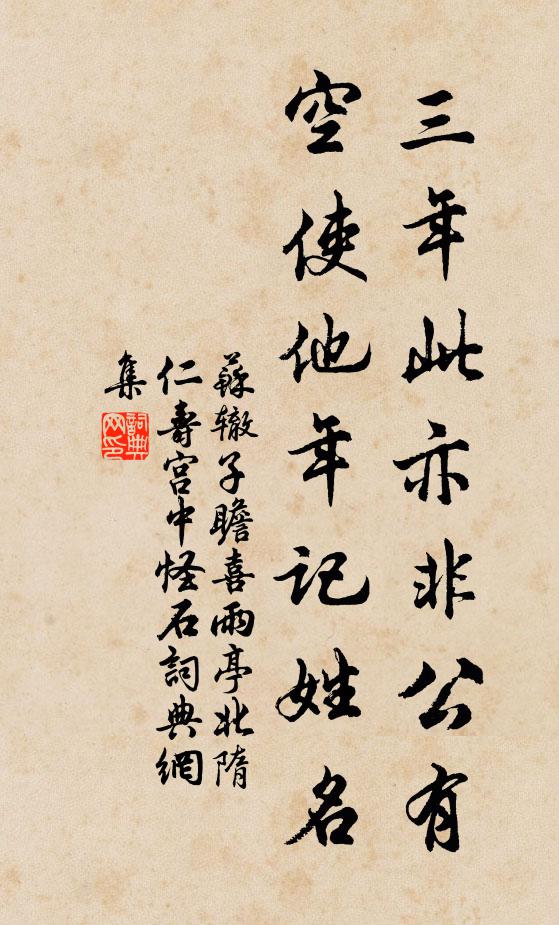 三年此亦非公有
空使他年記姓名
蘇辙子瞻喜雨亭北隋
仁壽宫中怪石詞典網
集
詞典
网印